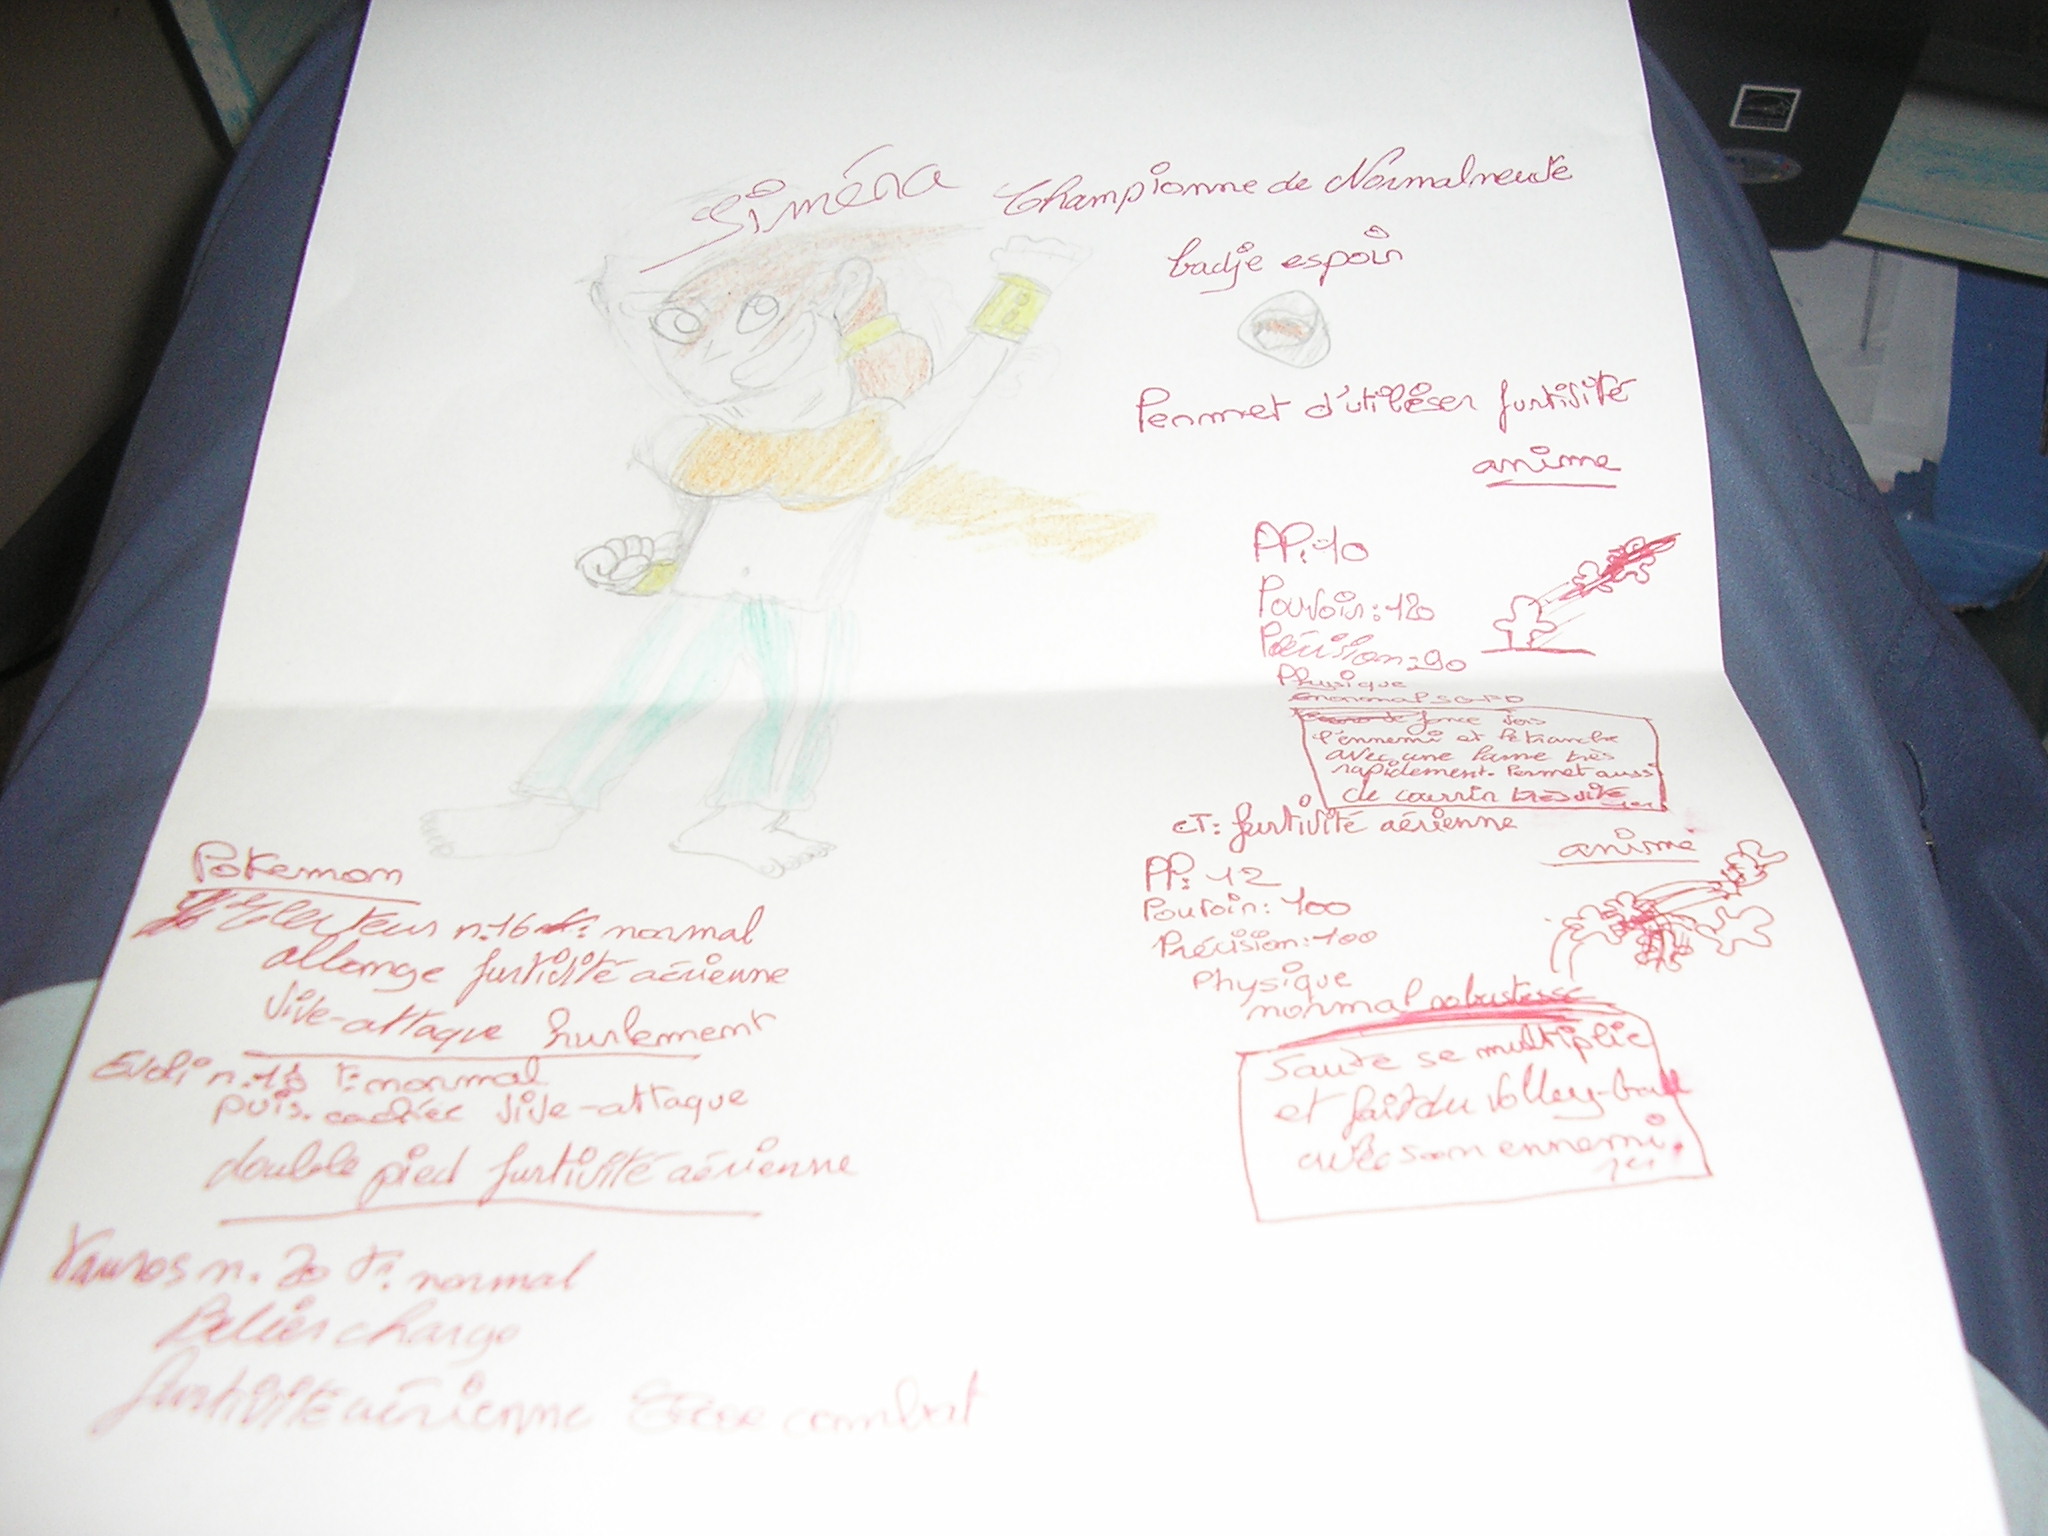 Siména Championne de Normalneute
badje espoir
Permet d'utiliser furtivité
anime
PP: 10
Pouvoir: 120
Précision: 90
Physique
normal
fonce vers
l'ennemi et le tranche
avec une lame très
rapidement. Permet aussi
de courrir très vite
CT: furtivité aérienne
anime
PP: 12
Pouvoir: 100
Précision: 100
Physique
normal robustesse
Saute se multiplie
et fait du volley-ball
avec son ennemi.
Pokemon
n.16 normal
allonge furtivité aérienne
vive-attaque hurlement
Evoli n.18 T: normal
puis. cachée vive-attaque
double pied furtivité aérienne
Tauros n. 20 T: normal
Belier charge
furtivité aérienne combat